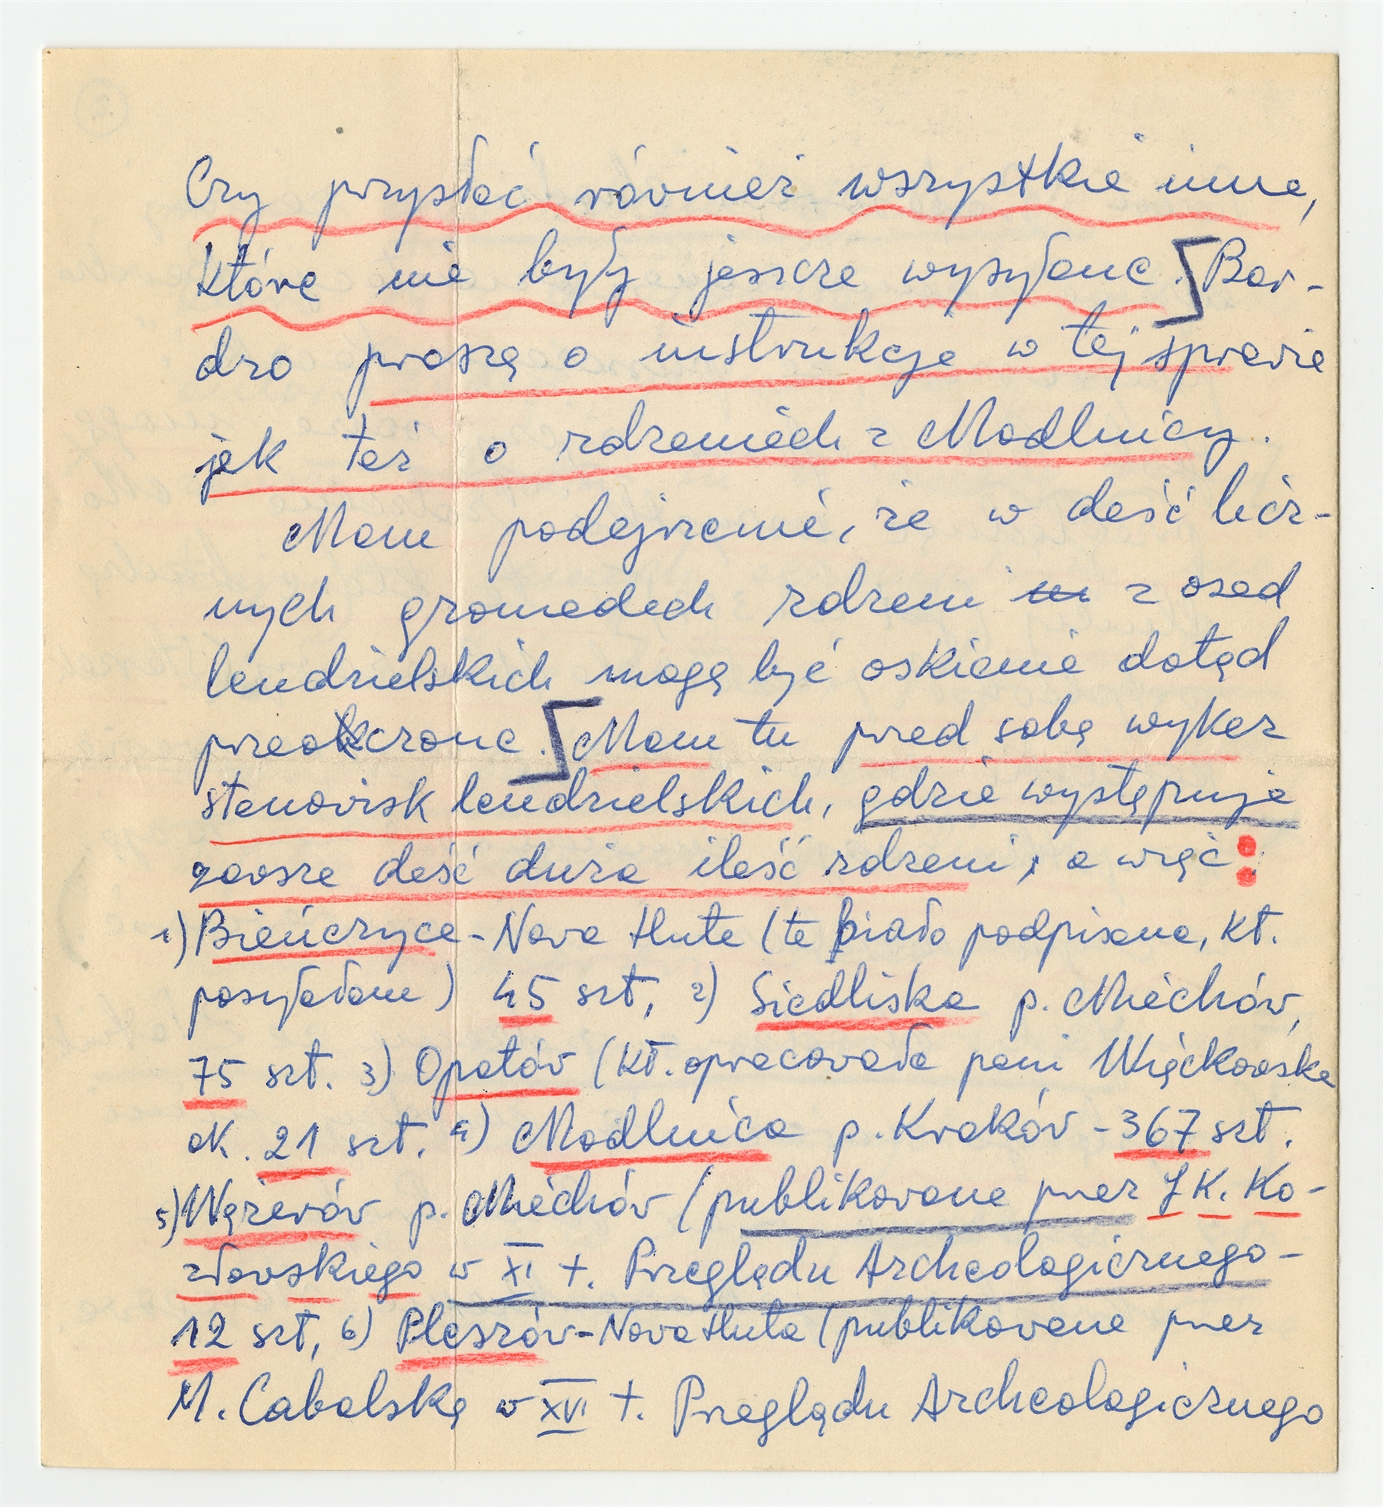 Czy przysłać również wszystkie inne,
które nie były jeszcze wysyłane. Bar-
dzo proszę o instrukcje w tej sprawie
jak też o rdzeniach z Modlnicy.
Mam podejrzenie, że w dość licz-
nych gromadach rdzeni z osad
lendzielskich mogą być oskienie dotąd
przeoczone. Mam tu przed sobą wykaz
stanowisk lendzielskich, gdzie występuje
zawsze dość duża ilość rdzeni, a więc:
1) Bieńczyce - Nowa Huta (te biało podpisane, kt.
posyłałam) 45 szt, 2) Siedliska p. Miechów,
75 szt. 3) Opatów (kt. opracowała pani Więckowska
ok. 21 szt. 4) Modlnica p. Kraków - 367 szt.
5) Wężerów p. Miechów (publikowane przez J K. Ko-
złowskiego w XI t. Przeglądu Archeologicznego -
12 szt, 6) Pleszów - Nowa Huta (publikowane przez
M. Cabalską w XVI t. Przeglądu Archeologicznego